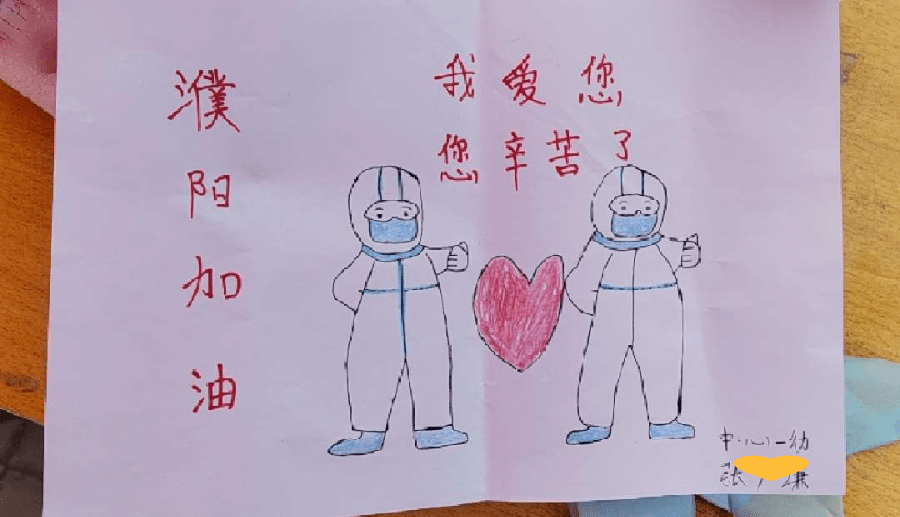 濮阳加油
我爱您
您辛苦了
中心一幼
张